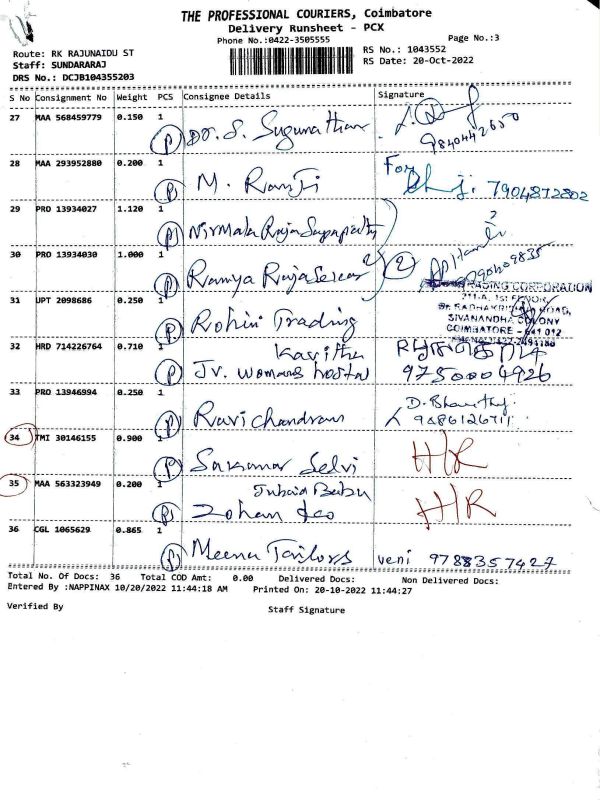 THE PROFESSIONAL COURIERS, Coimbatore
Delivery Runsheet - PCX
Phone No.:0422-3505555
Page No.:3
Route: RK RAJUNAIDU ST
RS No.: 1043552
Staff: SUNDARARAJ
RS Date: 20-Oct-2022
DRS No.: DCJB104355203
S No Consignment No Weight PCS Consignee Details Signature
27 MAA 568459779 0.150 1
P Dr. S. Sugunathan
9840442650
28 MAA 293952880 0.200 1 For
P M. Ramji 7904872802
29 PRO 13934027 1.120 1
P Nirmala Raja
30 PRO 13934030 1.000 1
P Ramya Rajasekar 2
TRADING CORPORATION
31 UPT 2098686 0.250 1
211-A, 1st FLOOR,
DR. RADHAKRISHNAN ROAD,
P Rohini Trading
SIVANANDHA COLONY
COIMBATORE - 641 012
32 HRD 714226764 0.710 1 Kavitha
P Jv. womans hostel 9750004926
33 PRO 13946994 0.250 1
P Ravichandran
34 TMI 30146155 0.900 1
P Selvi H/R
35 MAA 563323949 0.200 1 Jubaid Babu
P Zohan &co H/R
36 CGL 1065629 0.865 1
P Meena Tailors veni 9788357427
Total No. Of Docs: 36 Total COD Amt: 0.00 Delivered Docs: Non Delivered Docs:
Entered By :NAPPINAX 10/20/2022 11:44:18 AM Printed On: 20-10-2022 11:44:27
Verified By Staff Signature